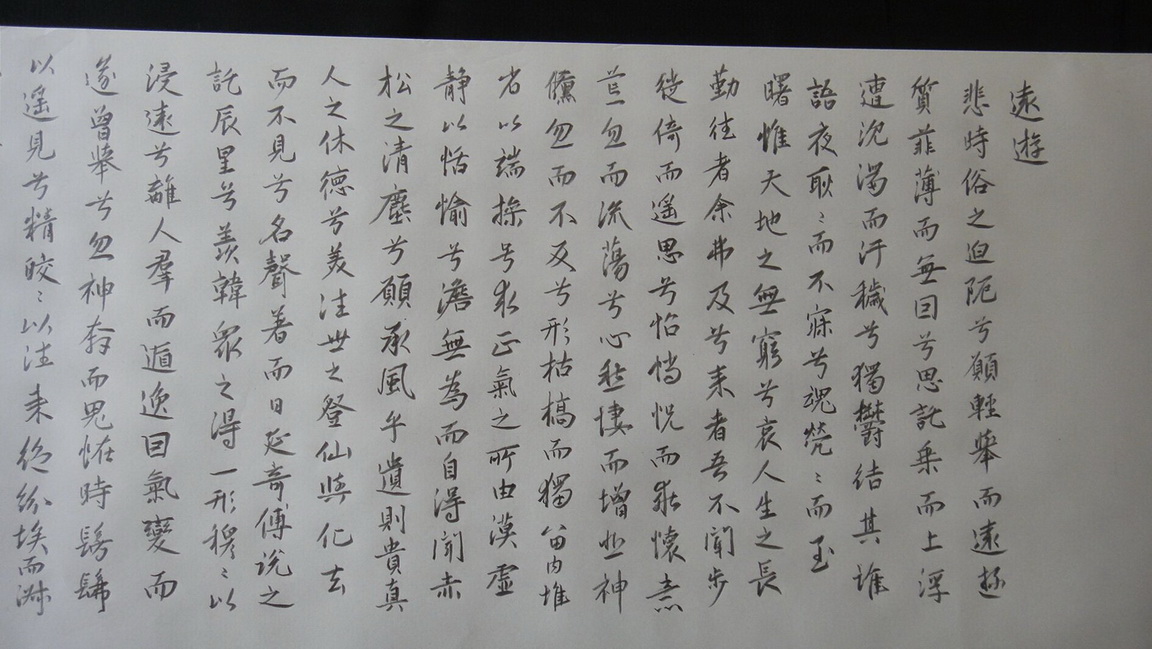 遠遊
悲時俗之迫阨兮願輕舉而遠遊
質菲薄而無因兮思託乘而上浮
遭沈濁而汙穢兮獨鬱結其誰
語夜耿〻而不寐兮魂焭〻而至
曙惟天地之無窮兮哀人生之長
勤往者余弗及兮来者吾不聞步
徙倚而遥思兮怊惝怳而乖懷意
荒忽而流蕩兮心愁悽而增悲神
儵忽而不反兮形枯槁而獨留内惟
省以端操兮求正氣之所由漠虛
静以恬愉兮澹無為而自得聞赤
松之清塵兮願承風乎遺則貴真
人之休德兮美往世之登仙與化去
而不見兮名聲著而日延奇傅說之
託辰星兮羨韓衆之得一形穆〻以
浸遠兮離人羣而遁逸因氣變而
遂曾舉兮忽神奔而鬼恠時髣髴
以遥見兮精皎〻以往来絶紛埃而淑